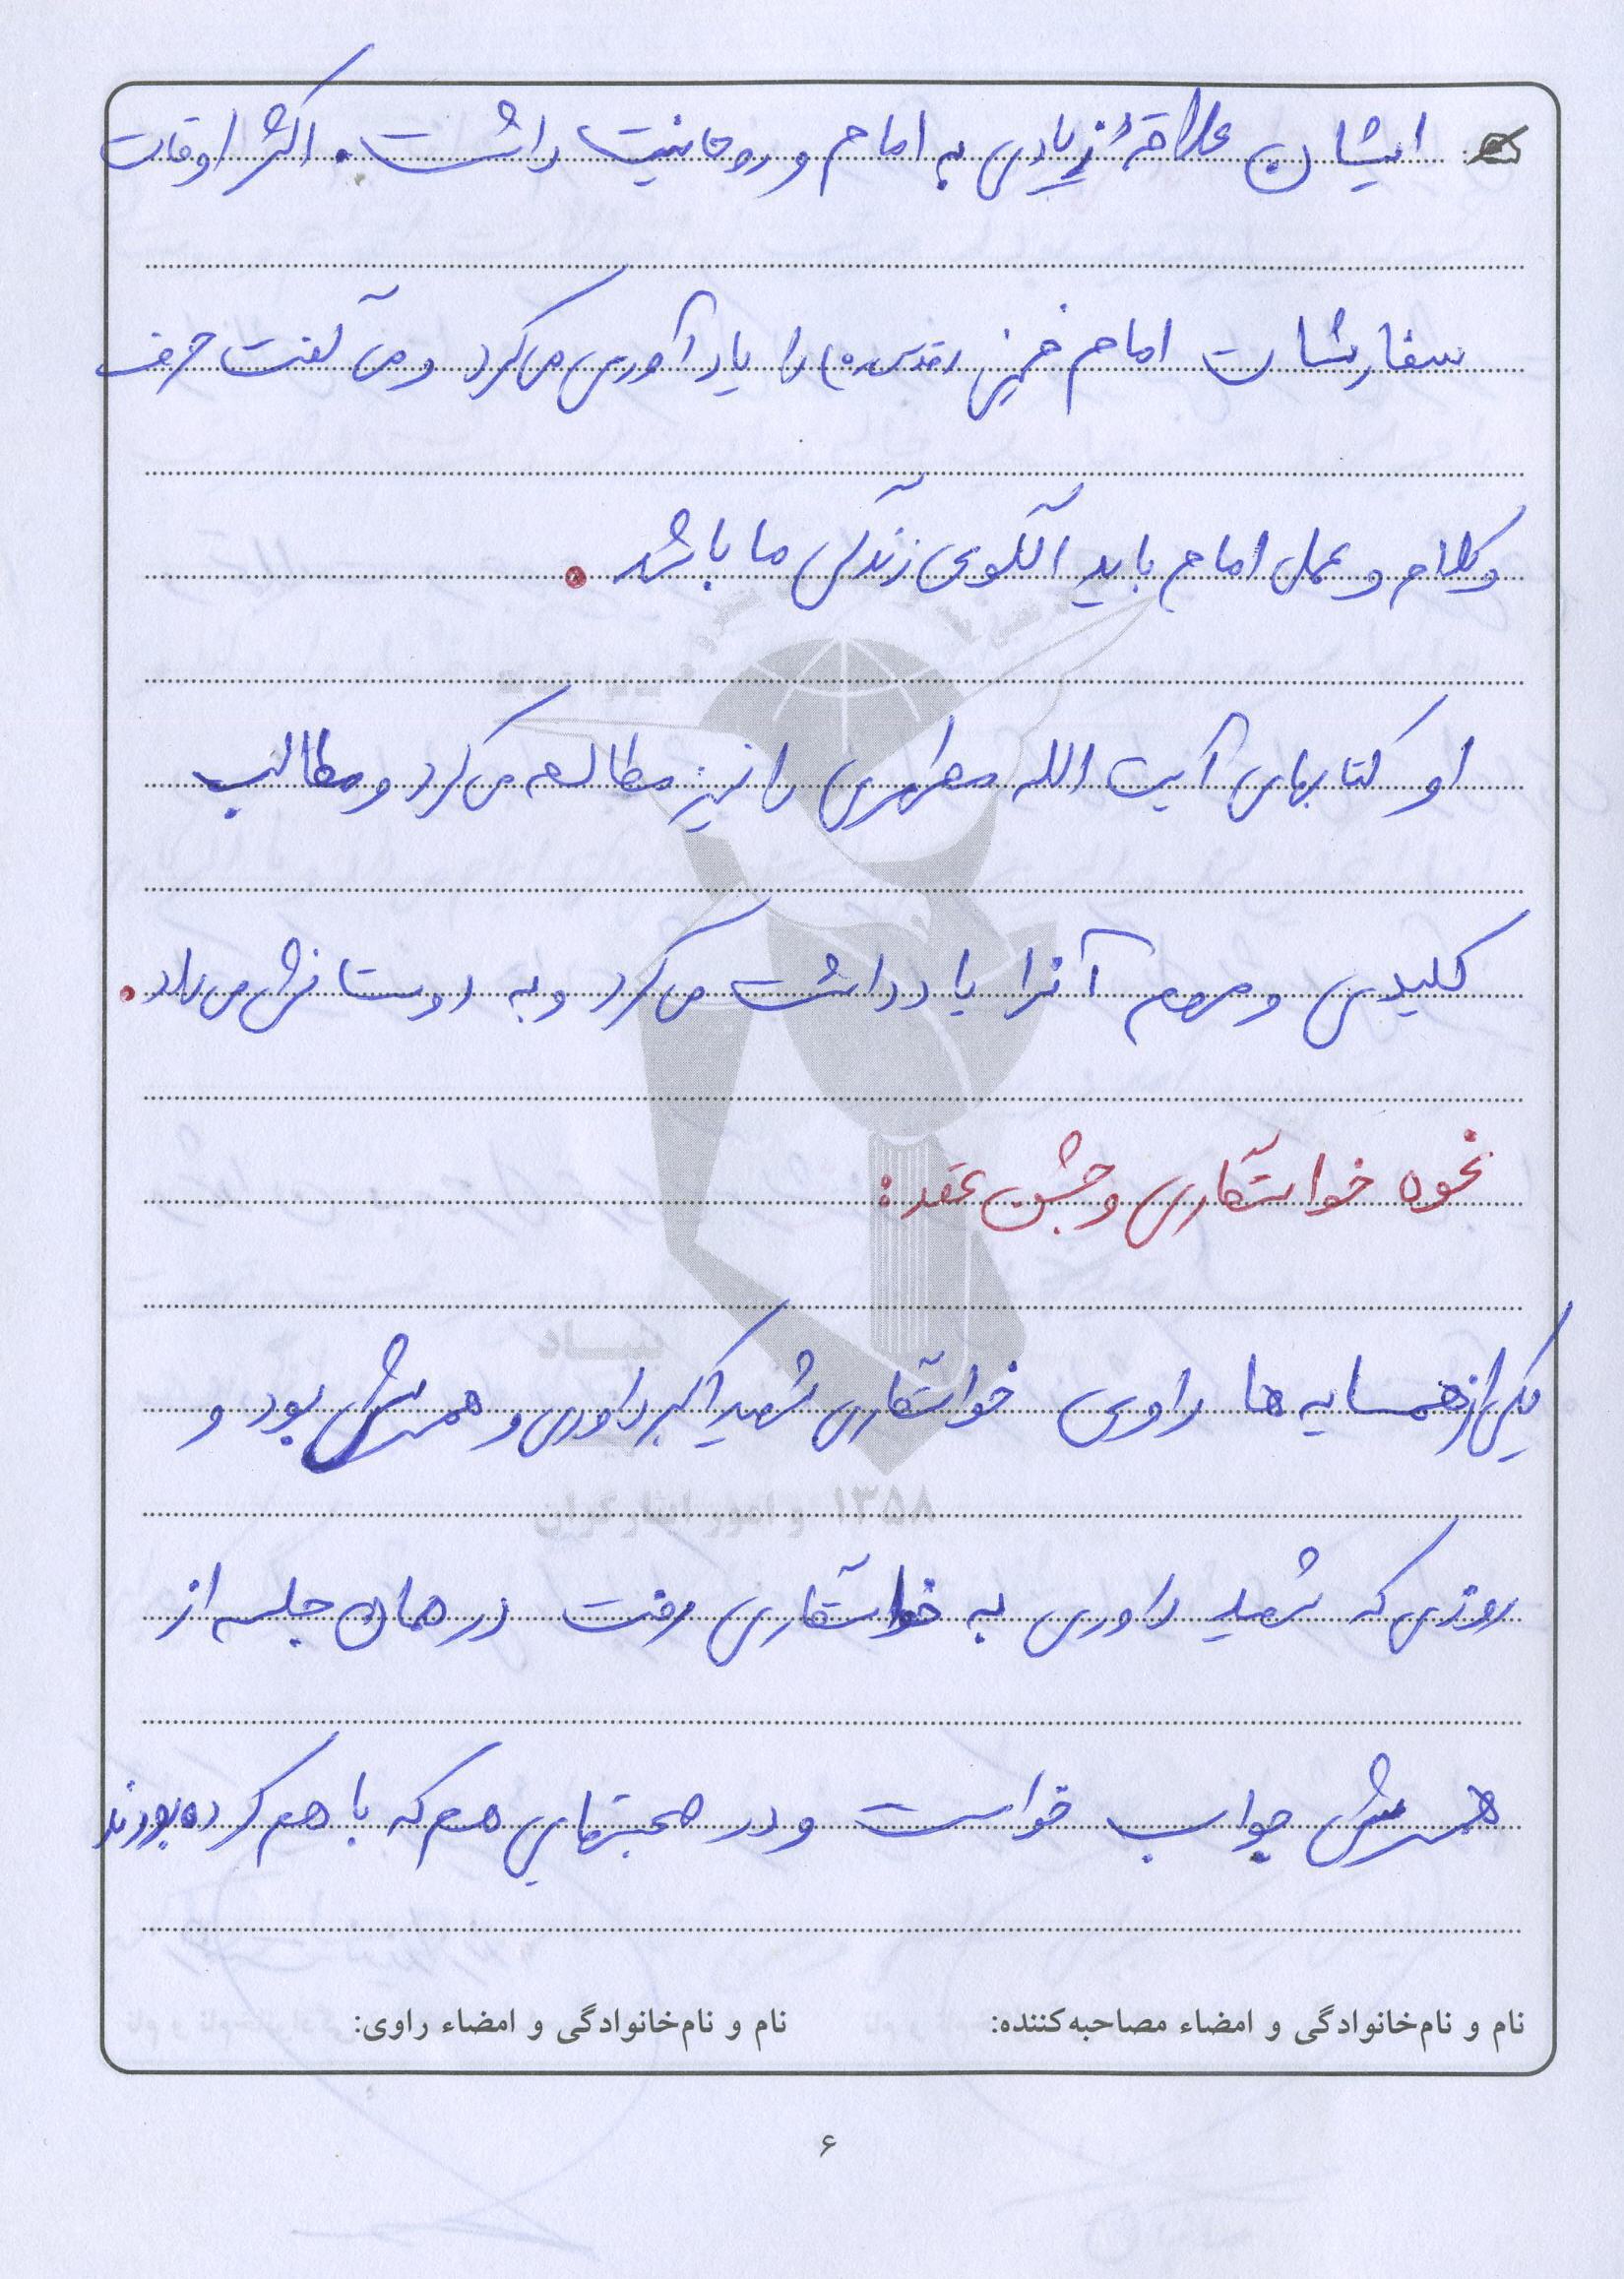 ایشان علاقهٔ زیادی به امام و روحانیت داشت. اکثر اوقات
سفارشات امام خمینی (قدس ره) را یادآوری می‌کرد و می‌گفت حرف
و کلام و عمل امام باید الگوی زندگی ما باشد.
او کتابهای آیت الله مطهری را نیز مطالعه می‌کرد و مطالب
کلیدی و مهم آنرا یادداشت می‌کرد و به دوستانش می‌داد.
نحوه خواستگاری و جشن عقد:
یکی از همسایه ها راوی خواستگاری شهید اکبر داوری و همسرش بود و
روزی که شهید داوری به خواستگاری رفت در همان جلسه از
همسرش جواب خواست و در صحبتهایی هم که با هم کرده بودند
نام و نام‌خانوادگی و امضاء مصاحبه‌کننده: نام و نام‌خانوادگی و امضاء راوی:
۶
بنیاد
و امور ایثارگران ۱۳۵۸